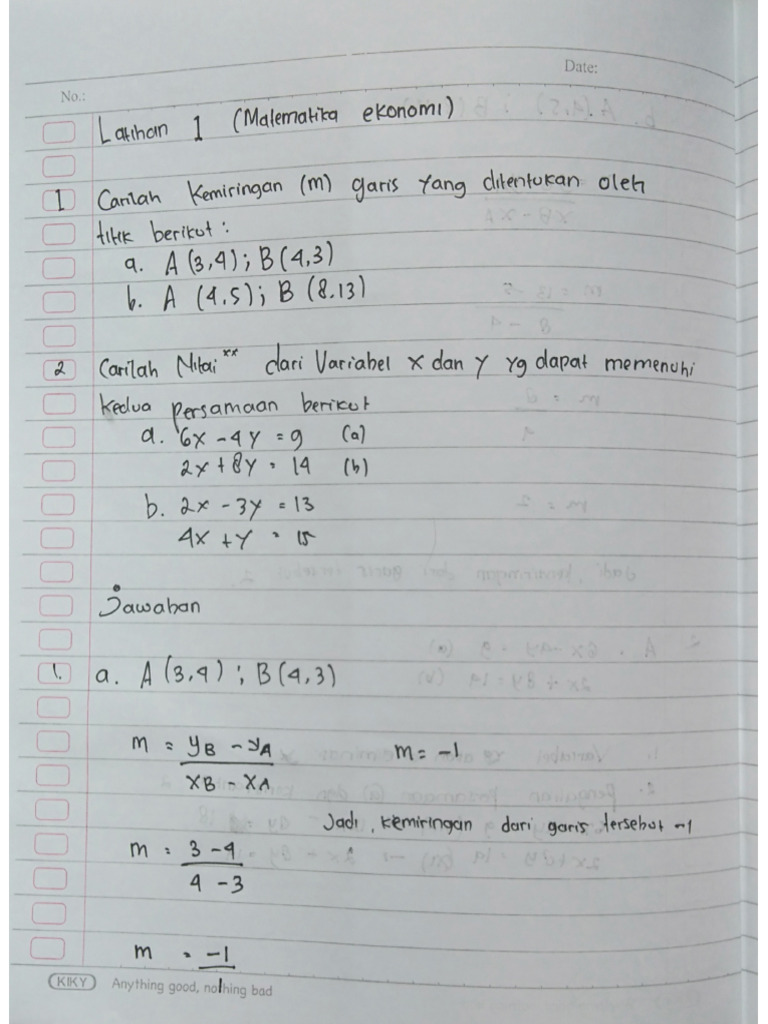 Date:
No.:
Latihan 1 (Matematika ekonomi)
1 Carilah Kemiringan (m) garis yang ditentukan oleh
titik berikut :
a. A (3,4) ; B (4,3)
b. A (4,5) ; B (8.13)
2 Carilah Nilai ** dari Variabel x dan y yg dapat memenuhi
Kedua persamaan berikut
a. 6x - 4y = 9 (a)
2x + 8y = 14 (b)
b. 2x - 3y = 13
4x + y = 15
Jawaban
1. a. A (3,4) ; B (4,3)
m = yB - yA / xB - xA m = -1
Jadi, kemiringan dari garis tersebut -1
m = 3 - 4 / 4 - 3
m = -1
KIKY Anything good, nothing bad